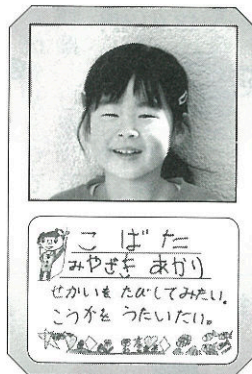 こばた
みやざき あかり
せかいを たびしてみたい。
こうかを うたいたい。